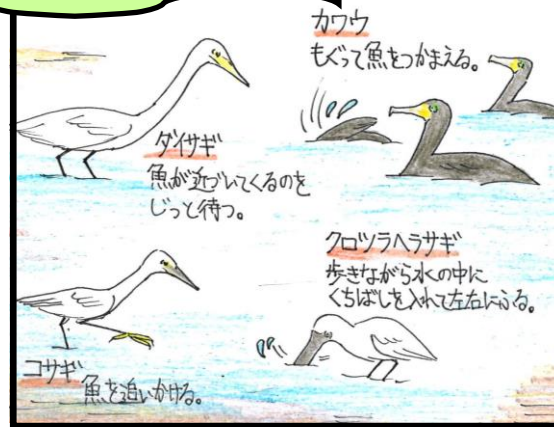 カワウ
もぐって魚をつかまえる。
ダイサギ
魚が近づいてくるのを
じっと待つ。
クロツラヘラサギ
歩きながら水の中に
くちばしを入れて左右にふる。
コサギ
魚を追いかける。